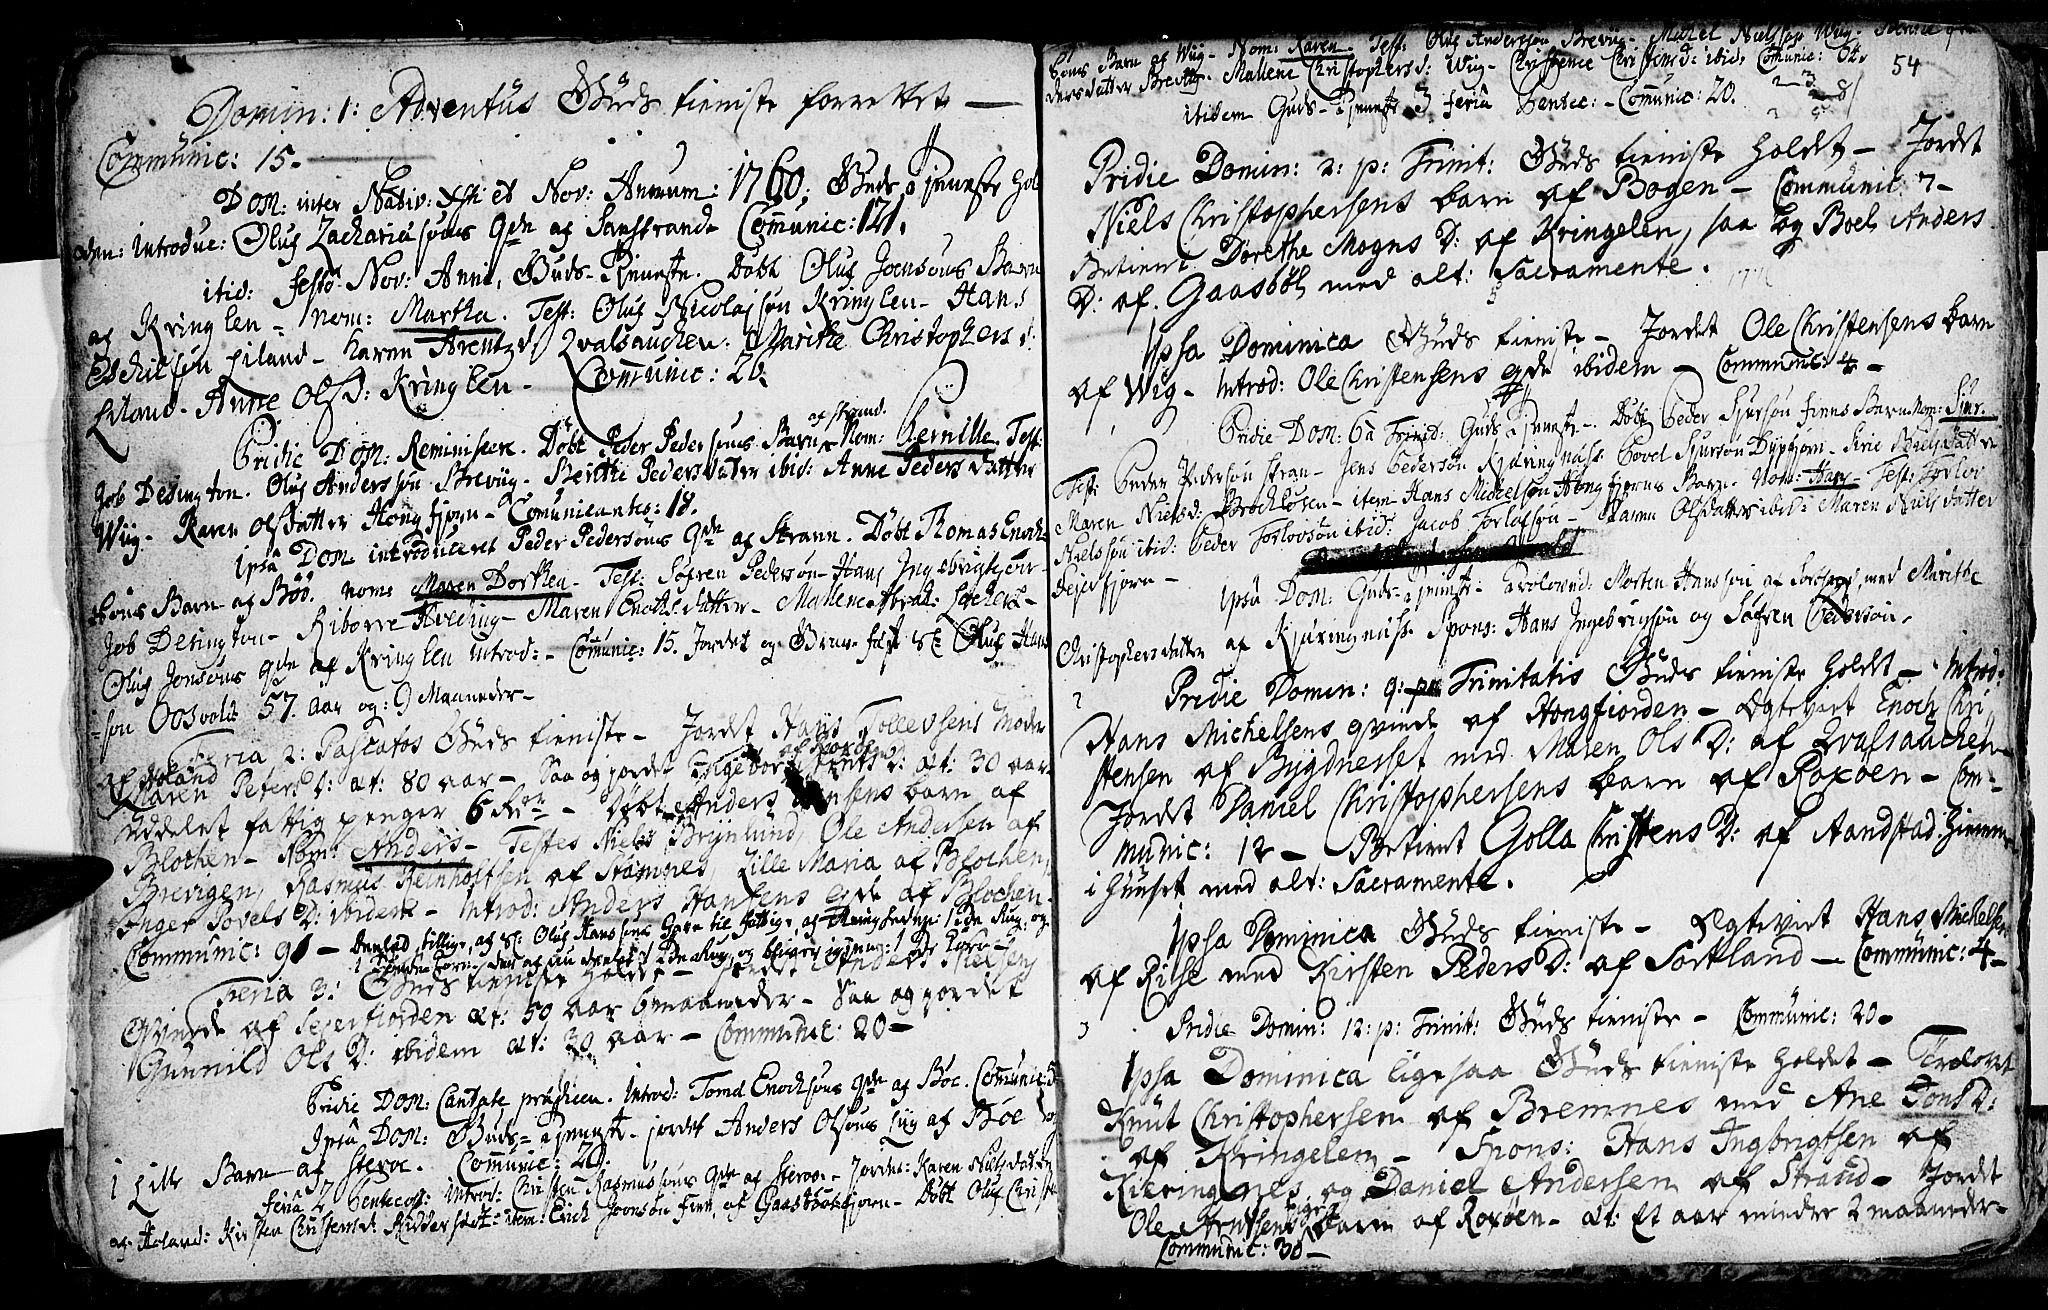 Domin: 1: Adventus Guds tieniste forrettet —
Communic: 15.
DOM: inter Nativ: Xsti et Nov: Annum: 1760. Guds tieneste hol
den: Introduc: Oluf Zachariasøns qde af Sanstrand Comunic: 121.
itid: festo Nov: Anni, Guds tieneste. Døbt Oluf Joensøns Barn
af Kringlen - nom: Martha. Test: Oluf Nicolajsøn Kringlen - Hans
Eschilsøn Eiland - Karen Arentzd: Qvalsauchen: Marithe Christophersd:
Eiland - Anne Olsd: Kringlen - Comunic: 20.
Pridie DOM: Reminiscere. Døbt Peder Pedersøns Barn af Strand. Nom: Pernille. Test:
Job Desington. Oluf Anderssøn Breviig - Berithe Pedersdatter ibid: Anne Pedersdatter
Wiig - Karen Olsdatter Hongfjorn - Comunicantes: 18.
Ipsa DOM: introduceret Peder Pedersøns qde af Strann. Døbt Thomas Enoch
søns Barn af Böö. nom: Maren Dorthea - Test: Søfren Pedersøn - Hans Ingebrigtsøn -
Job Desington - Riborre Hveding - Maren Enochsdatter -
Oluf Jonsøns qde af Kringlen introd: - Comunic: 15. Jordet og Oluf Hans
søn Oosvold 57. aar og: 9 Maaneder -
Feria 2: Pascatos Guds tieniste - Jordet Hans Tollevsens Moder
af Holand
Karen Peters D: æt: 80 aar - Saa og jordet Ingebor D: æt: 30 aar
Uddelet fattig penger 6 - Døbt Anders Hansens barn af
Blochen - Nom: Anders - Testes Niels Brynlund, Ole Andersen af
Brevigen, Rasmus Reinholtsen af Stamnes, Lille Maria af Blochen,
Inger Povels D: ibidem - Introd: Anders Hansens qde af Blochen -
Communic: 91 - Oluf Hanssøns til fattige
Feria 3: Guds tieniste holdt - Jordet Anders Nielsens
Qvinde af Seierfiorden æt: 50 aar 6 maaneder - Saa og jordet
Gunnild Ols D: ibidem æt: 30 aar - Communic: 20 -
Pridie DOM: Cantate prædicen. Introd: Tomas Enochsøns qde af Böe. Comunic:
Ipsa DOM: Guds tjeneste - jordet Anders Olsøns Liig af Böe og
1 Lille Barn af Steroe. Comunic: 20.
Feria 2 Pentecost: Introd: Christen Rasmussøns qde af Steroe - Jordet: Karen Nielsdatter
af Holand: Kirsten Christensd: item: Erich Joensøn Finn af Gaasbölfjorn - Döbt Oluf Christen
søns Barn af Wiig - Nom: Karen - Test: Oluf Andersøn Breviig - Michel Nielssøn Wiig -
dersdatter Breviig - Mallene Christophersd: Wiig - Christence Christensd: ibid: Comunic: 54
itidem Guds tjeneste 3 feria Pentec: - Comunic: 20.
Pridie Domin: 2: p: Trinit: Guds tieniste holdet - Jordet
Niels Christophersens barn af Bogen - Communic: 7 -
Betient Dorethe Mogns D: af Kringelen, saa og Boel Anders
D: af Gaasböl med alt: Sacramente.
Ipsa Dominica Guds tieniste - Jordet Ole Christensens barn
af Wig - Introd: Ole Christensens qde ibidem - Communic: 4 -
Pridie DOM: 6a Trinit: Guds tjeneste - Døbt Peder Sjursøn Finns Barn. Nom: Siur.
Test: Peder Pedersøn Stran - Jens Pedersøn Kjæringnæss - Povel Sjursøn Dypfjorn -
Maren Nielsd: Brochløsen - item Hans Michelsøn Hongfjorns Barn - Nom: Hans - Test: Torlov
Nielssøn ibid: Peder Torlovsøn ibid: Jacob Torlofsøn - Karen Olsdatter ibid: Maren Nielsdatter
Seierfjorn -
Ipsa DOM: Guds tjeneste - Trolovid: Morten Hanssøn af med Marithe
Christophersdatter af Kjæringnæss. Spons: Hans Ingebrigtsøn og Søfren Pedersøn.
Pridie Domin: 9: p: Trinitatis Guds tieniste holdt - Introd:
Hans Michelsens qvinde af Hongfiorden - Ægteviet Enoch Chri
stensen af Bygdnesset med Maren Ols D: af Qvalsauchen -
Jordet Daniel Christophersens barn af Roxøen - Com-
munic: 12 - Betient Golla Christens D: af Aandstad hiemme
i huuset med alt: Sacramente.
Ipsa Dominica Guds tieniste - Ægteviet Hans Michelsen
af Rise med Kirsten Peders D: af Sortland - Communic: 4 -
Pridie Domin: 12: p: Trinit: Guds tieniste - Communic: 20 -
Ipsa Dominica ligesaa Guds tieniste holdet - Trolovet
Knut Christophersen af Bremnes med Ane Tons D:
af Kringelen - Spons: Hans Ingbrigtsen af
Kieringnes og Daniel Andersen af Strand - Jordet
Ole Arntsens barn af Roxøen - æt: Et aar mindre 2 maaneder -
Communic: 30 -